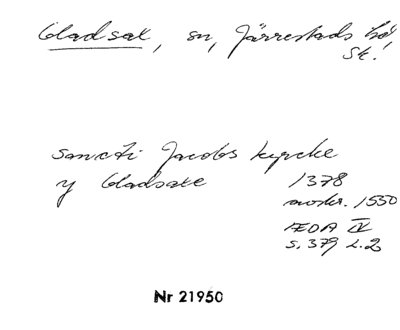 Gladsax, sn, Järrestads hd,
Sk.
Sancti Jacobs kyrcke
y Gladsaxe 1378
avskr. 1550
ÆDA IV
s. 379 L.2
Nr 21950